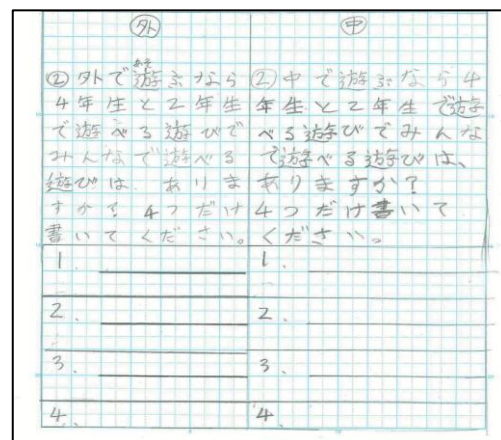 外
②外で遊ぶなら
あそ
4年生と2年生
で遊べる遊びで
みんなで遊べる
遊びは、ありま
すか？4つだけ
書いてください。
1.
2.
3.
4.
中
②中で遊ぶなら4
年生と2年生で遊
べる遊びでみんな
で遊べる遊びは、
ありますか？
4つだけ書いて
ください。
1.
2.
3.
4.